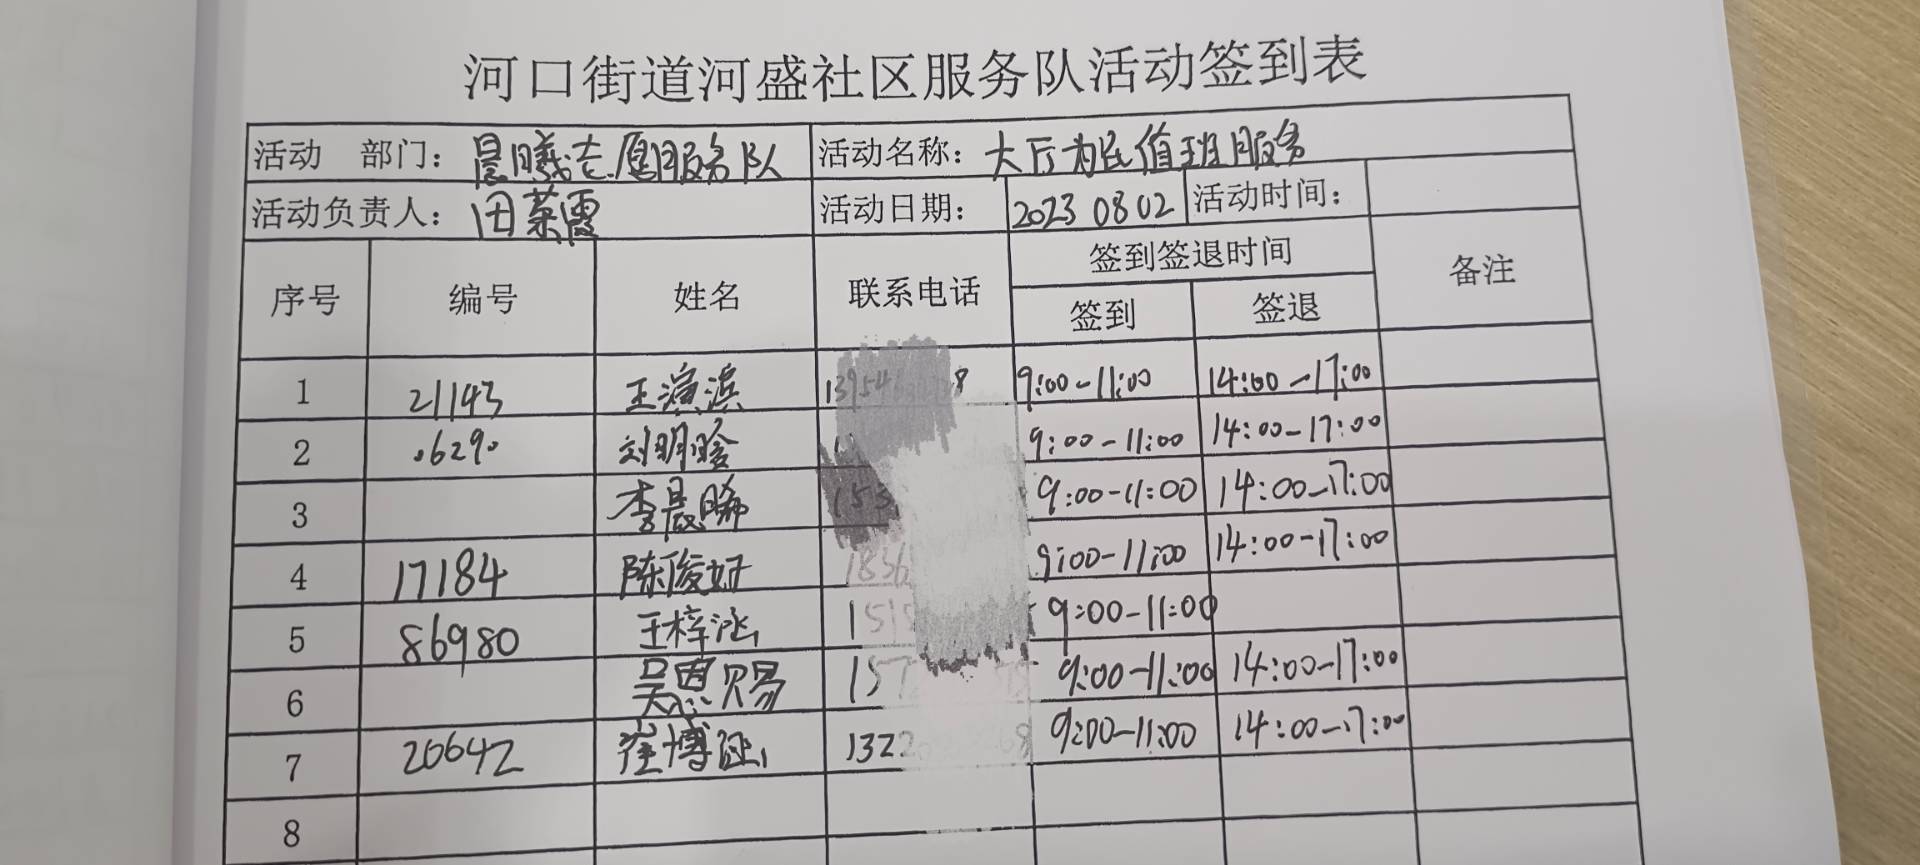 河口街道河盛社区服务队活动签到表
活动 部门: 晨曦志愿服务队 活动名称: 大厅为民值班服务
活动负责人: 田荣霞 活动日期: 2023 08 02 活动时间:
序号 编号 姓名 联系电话 签到签退时间 备注
签到 签退
1 21143 王演滨 9:00-11:00 14:00-17:00
2 06290 刘明晗 9:00-11:00 14:00-17:00
3 李晨曦 153 9:00-11:00 14:00-17:00
4 17184 陈俊妤 1836 9:00-11:00 14:00-17:00
5 86980 王梓涵 151 9:00-11:00
6 吴恩赐 157 9:00-11:00 14:00-17:00
7 20642 崔博 1322 9:00-11:00 14:00-17:00
8